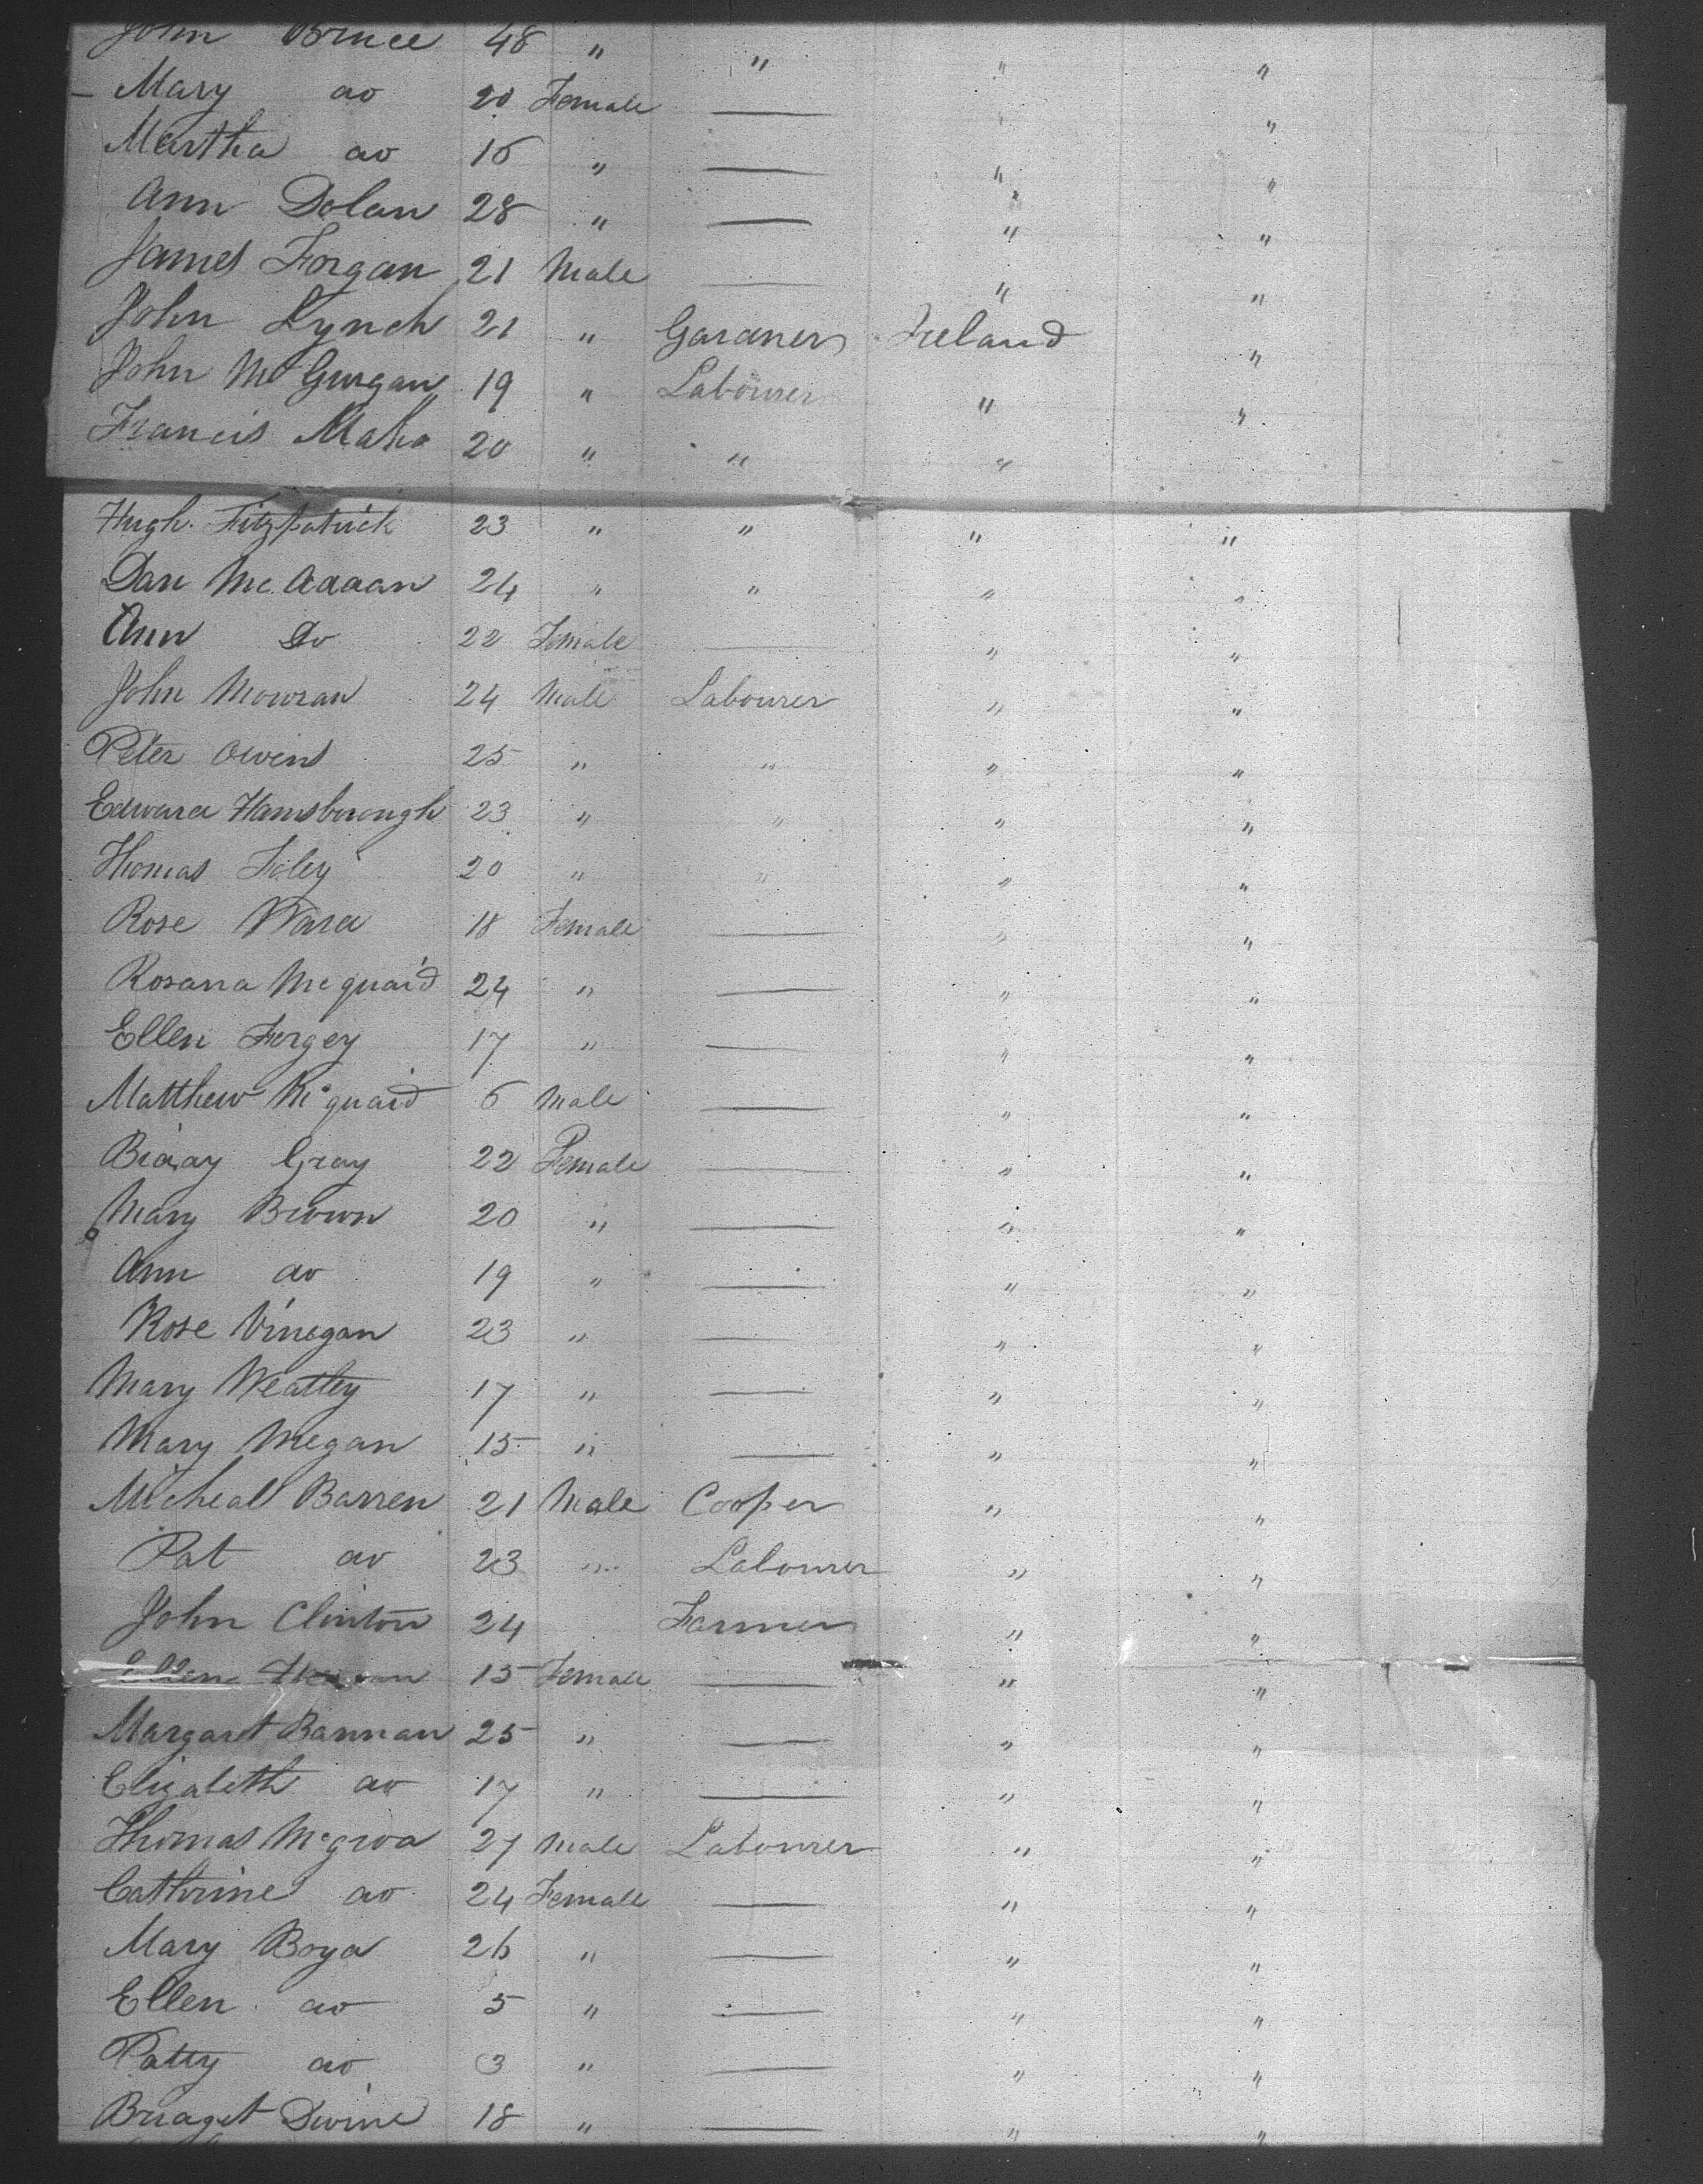 John Bruce 48 " " " "
Mary do 20 Female — " "
Martha do 16 " — " "
Ann Dolan 28 " — " "
James Forgan 21 Male — " "
John Lynch 21 " Gardner Ireland "
John McGurgan 19 " Labourer " "
Francis Maha 20 " " "
Hugh Fitzpatrick 23 " " " "
Dan Mc Adaan 24 " " " "
Ann Do 22 Female — " "
John Mowran 24 Male Labourer " "
Peter Owens 25 " " " "
Edward Hansborough 23 " " " "
Thomas Foley 20 " " " "
Rose Ward 18 Female — " "
Rosana Mcquaid 24 " — " "
Ellen Forgey 17 " — " "
Matthew Mcquaid 6 Male — " "
Biddy Gray 22 Female — " "
Mary Brown 20 " — " "
Ann do 19 " — " "
Rose Vinegan 23 " — " "
Mary Weatley 17 " — " "
Mary Megan 15 " — " "
Micheal Barren 21 Male Cooper " "
Pat do 23 " Labourer " "
John Clinton 24 Farmer " "
Ellen 15 Female — " "
Margaret Bannan 25 " — " "
Elizabeth do 17 " — " "
Thomas Mcgroa 27 Male Labourer " "
Cathrine do 24 Female — " "
Mary Boyd 26 " — " "
Ellen do 5 " — " "
Patty do 3 " — " "
Bridget Divine 18 " — " "